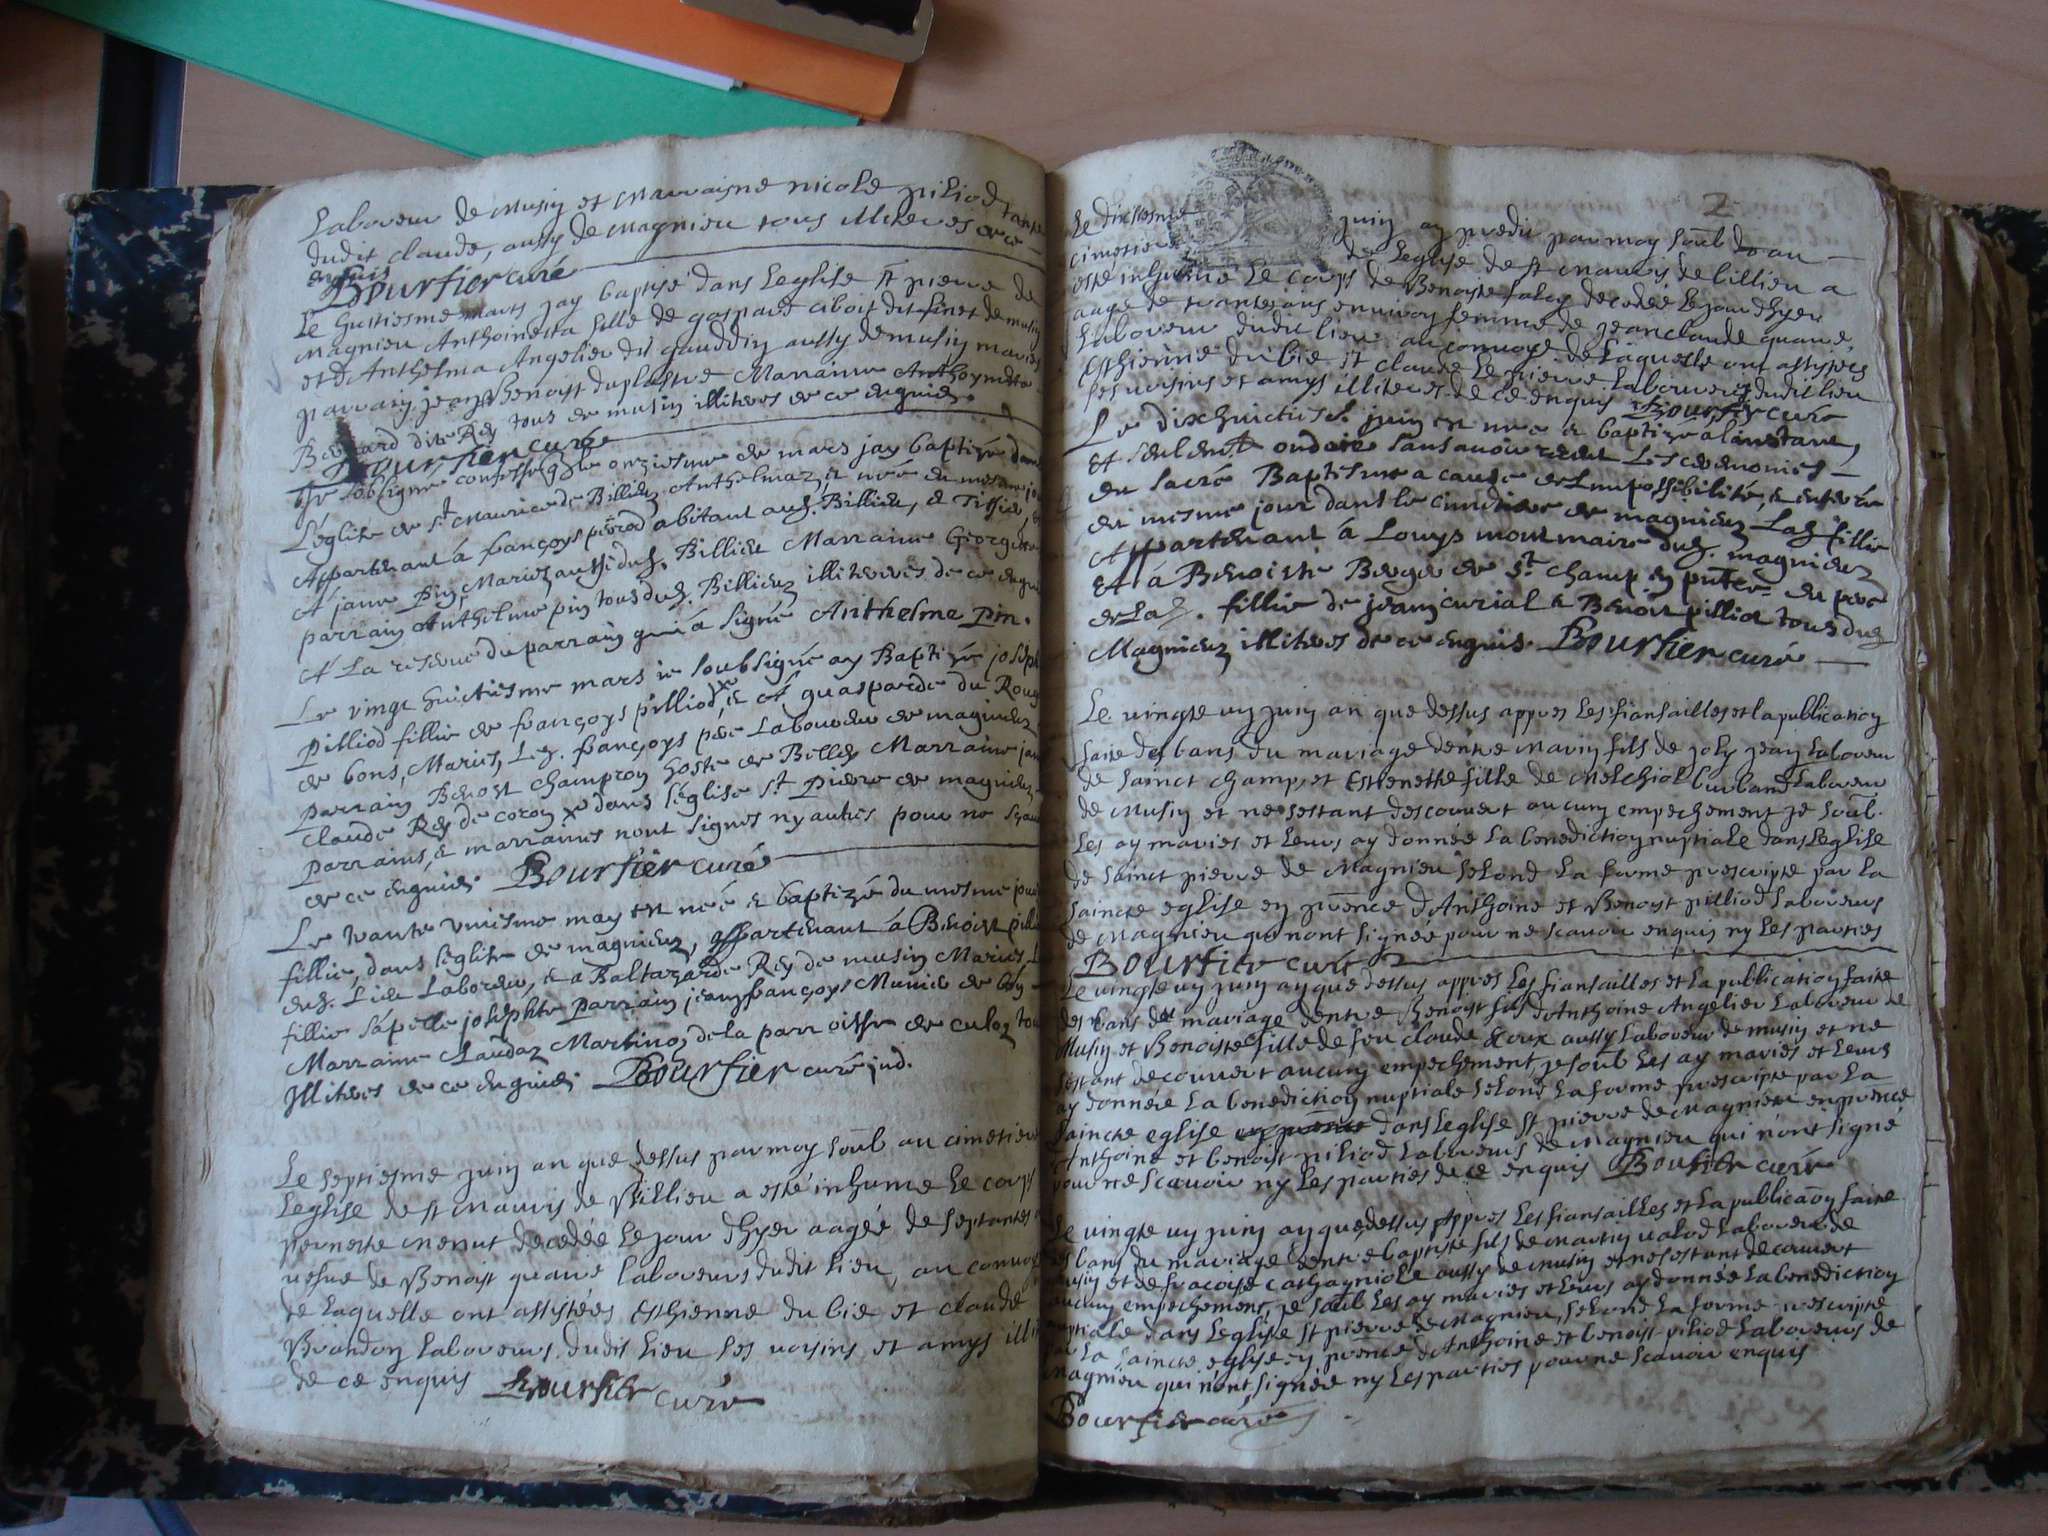 Laboreur de Musin et Marraigne nicole piliod tante
dudit claude, aussy de Magnieu tous illiteres de ce
enquis
Boursier curé
Le huitiesme mars jay baptisé dans Leglise st pierre de
magnieu Anthoinetta fille de gaspard ciboit dit finet de musin
et d'Anthelma Angelier dit gauddin aussy de musin mariés
parrain jean Benoist duplastre Marraine Anthoynette
Bernard dite Rey tous de musin illiteres de ce enquis.
Boursier curé
Je soubsigné confesse que le onziesme de mars jay baptizé dans
L'église de st Maurice de Billieu Anthelmaz, née du mesme jour
Appartenant á françoys pérod abitant aud. Billieu, & Tissier,
& á jane Pin, Mariez aussi dud. Billieu Marraine Georgette
parrain Anthelme pin tous dud. Billieu illiterés de ce enquis
A La reserve du parrain qui á signé Anthelme Pin.
Le vingt huictiesme mars ie soubsigné ay Baptizé joseph
pilliod fillie de françoys pilliod, & á guasparde du Roug
de bons, Mariez, Led. françoys père Laboureur de magnieu
parrain Benoit champroy hoste de Billey Marraine jan
claude Rey de coron dans l'église st Pierre de magnieu
parrains, & marraines nont signés ny autres pour ne sçavoir
de ce enquis Boursier curé
Le trante uniesme may est née & baptizé du mesme jour
fillie, dans léglise de magnieu, appartenant á Benoit pilliod
dud. Lieu Laboreur, & a Baltazarde Rey de musin Mariez, La
fillie sápelle josephte Parrain jean françoys Munier de bey
Marraine Claudaz Martinod de la parroisse de culoz tous
Illiteres de ce enquis Boursier curé jud.
Le septiesme juin an que dessus par moy soub au cimetiere
Leglise de st Mauris de Billieu a esté inhume le corps
pernette menut decedée le jour d'hyer aagée de septantes
vesve de Benoist quavé laboreurs dudit lieu, au convoy
de laquelle ont assystées Esthienne du bié et claude
Brondon laboreurs dudit lieu ses voisins et amys illi
de ce enquis Boursier curé
2
Le dixiesme juin an predit par moy soub dans
cimetiere de Leglise de st Mauris de billieu a
esté inhumé le corps de Benoiste falcoz decedée le jour d'hyer
aagé de trante ans environ femme de jean claude quavé,
Laboreur dudit lieu au convoye de laquelle ont assystées
Esthienne du bié et claude Le pierre Laboureurs dudit lieu
ses voisins et amys illiteres de ce enquis Boursier curé
Le dixhuictiesme juin est née & baptizée á l'instant
et seulemt ondoiée sans avoir receu Les ceremonies
du sacré Baptesme a cause de Limpossibilité, & enterée
du mesme jour dans le cimetiere de magnieu Lad. fillie
Appartenant á Louys montmaire dud. magnieu
Et á Benoiste Berger de st champ en pnce du père
de Lad. fillie de jean curial & Benoit pilliod tous dud
Magnieu illiteres de ce enquis. Boursier curé
Le vingte un juin an que dessus appres Les fiansailles et la publication
faite des bans du mariage d'entre Marin fils de joly jean laboreur
de sainct champ, et Estienette fille de Melchiol burband Laboreur
de Musin et ne sestant descouvert aucung empechement je soub.
Les ay mariés et leurs ay donnée la benediction nuptiale dans Leglise
de sainct pierre de Magnieu selond La forme prescripte par La
saincte eglise en pnce d'Anthoine et Benoyst pilliod Laboreurs
de Magnieu qui nont signée pour ne scavoir enquis ny Les parties
Boursier curé
Le vingte un juin an que dessus appres Les fiansailles et La publication faite
des bans de mariage d'entre Benoyst fils d'Anthoine Angelier Laboreur de
Musin et Benoyste fille de feu claude Roux aussy Laboreur de musin et ne
sestant decouvert aucung empechement, je soub Les ay mariés et Leurs
ay donnée La benediction nuptiale selond La forme prescripte par La
saincte eglise en presence dans Leglise st pierre de Magnieu en presence
Anthoine et benoist piliod Laboreurs de Magnieu qui nont signé
pour ne scavoir ny Les parties de ce enquis Boursier curé
Le vingte un juin an que dessus Appres Les fiansailles et La publication faite
des bans du mariage d'entre baptiste fils de Martin valod Laboreur de
Musin et de fracoise cathagniole aussy de musin et ne sestant decouvert
aucung empechement, je soub Les ay mariés et Leurs ay donnée La benediction
nuptiale dans Leglise st pierre de Magnieu, selond La forme prescripte
par La saincte eglise en presence d'Anthoine et benoist piliod Laboreurs de
Magnieu qui n'ont signée ny Les parties pour ne scavoir enquis
Boursier curé